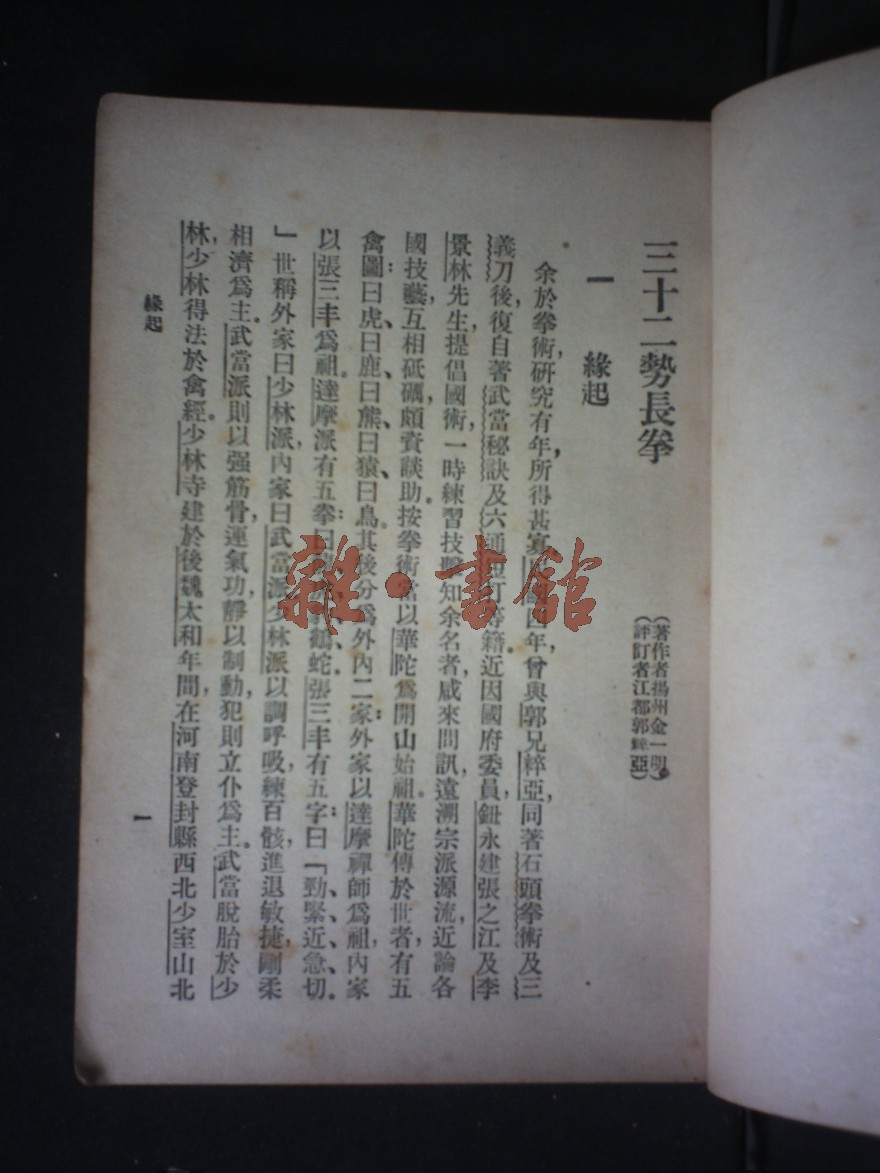 三十二勢長拳
(著作者揚州金一明)
(評訂者江都郭粹亞)
一 緣起
余於拳術研究有年,所得甚寡,四年,曾與郭兄粹亞,同著石頭拳術及三
義刀後,復自著武當秘訣及六通短打等籍。近因國府委員,鈕永建張之江及李
景林先生,提倡國術,一時練習技擊知余名者,咸來問訊,遠溯宗派源流,近論各
國技藝,互相砥礪,頗資談助。按拳術當以華陀爲開山始祖。華陀傳於世者,有五
禽圖:曰虎、曰鹿、曰熊、曰猿、曰鳥。其後分爲外內二家:外家以達摩禪師爲祖,內家
以張三丰爲祖。達摩派有五拳:曰鶴、蛇。張三丰有五字:曰「勁、緊、近、急、切、
」世稱外家曰少林派,內家曰武當派。少林派以調呼吸,練百骸,進退敏捷,剛柔
相濟爲主。武當派則以强筋骨,運氣功,靜以制動,犯則立仆爲主。武當脫胎於少
林,少林得法於禽經。少林寺建於後魏太和年間,在河南登封縣西北少室山北
緣起
一
雜·書館